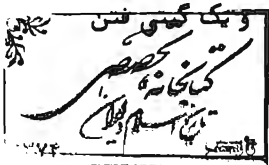 و یک گیتی فتن
کتابخانه تخصصی
تاریخ اسلام و ایران